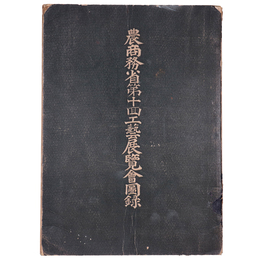 農商務省第十四工藝展覽會圖錄